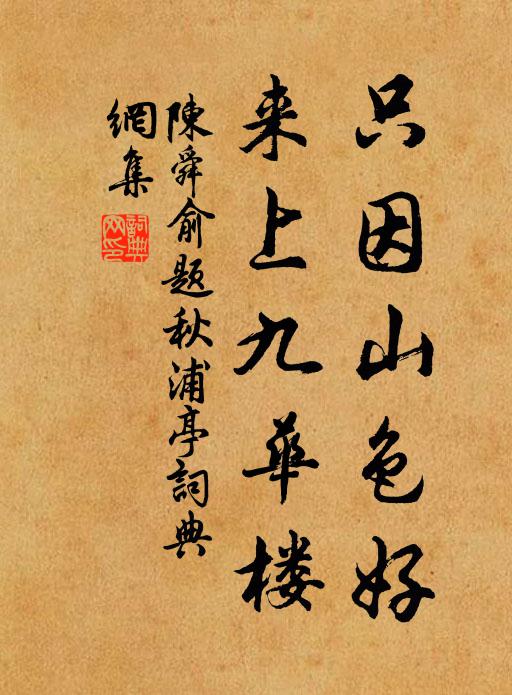 只因山色好
来上九華楼
陳舜俞题秋浦亭詞典
網集
詞典
网印